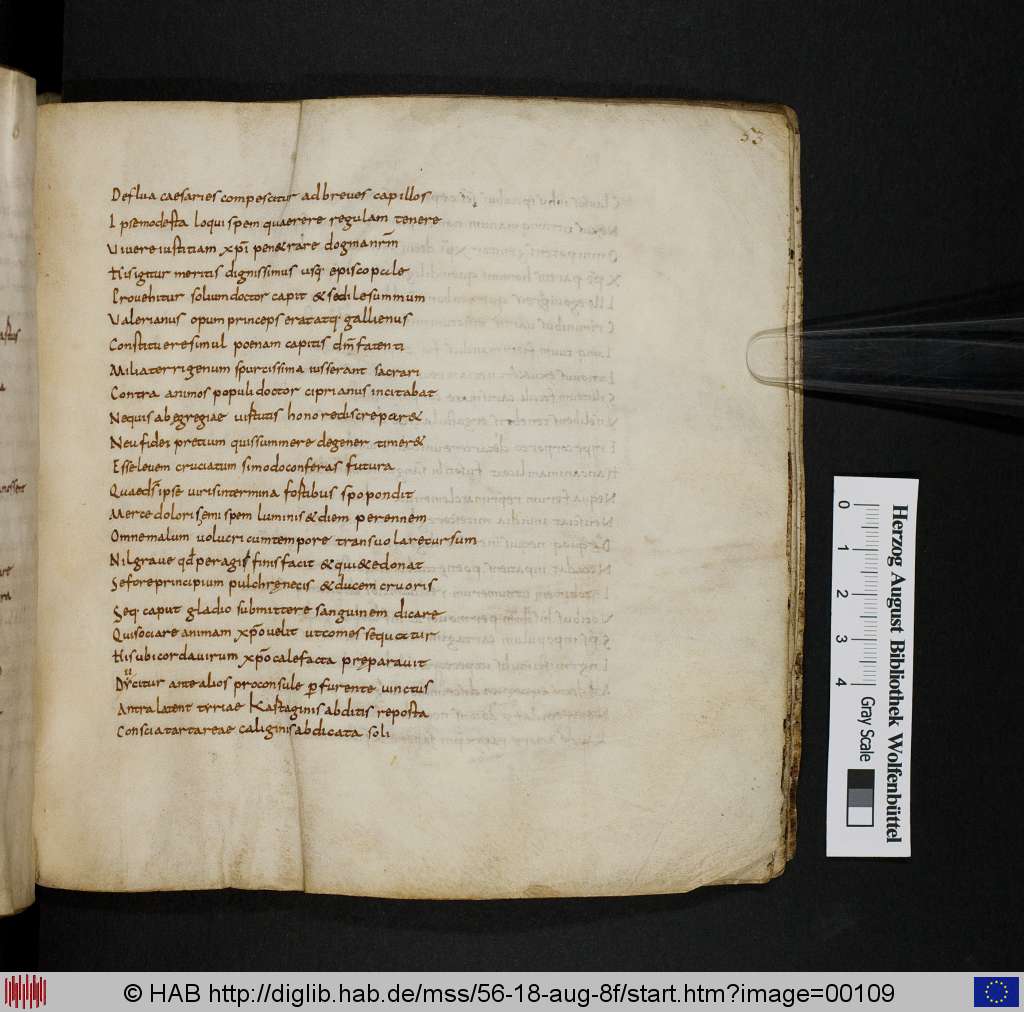 53
Deflua caesaries compescitur ad breves capillos
Ipse modesta loqui spem quaerere regulam tenere
Vivere iustitiam xp̄i pen&rare dogma nr̄m
His igitur meritis dignissimus usq; episcopale
Provehitur solium doctor capit & sedile summum
Valerianus opum princeps erat atq; gallienus
Constituere simul poenam capitis dm̄ fatenti
Milia terrigenum spurcissima iusserant sacrari
Contra animos populi doctor ciprianus incitabat
Nequis ab egregiae virtutis honore discrepar&
Neu fidei pretium quis summere degener timer&
Esse levem cruciatum si modo conferas futura
Quae ds̄ ipse viris intermina fortibus spopondit
Merce doloris emi spem luminis & diem perennem
Omne malum volucri cum tempore transvolare cursum
Nil grave qđ peragi finis facit & qui&e donat
Se fore principium pulchrę necis & ducem cruoris
Seq caput gladio submittere sanguinem dicare
Qui sociare animam xp̄o velit ut comes sequatur
His ubi corda virum xp̄o calefacta pręparavit
Ducitur ante alios proconsule ꝑfurente vinctus
Antra latent tyriae Kartaginis abditis reposta
Conscia tartareae caliginis abdicata soli
Herzog August Bibliothek Wolfenbüttel
0 1 2 3 4 Gray Scale
© HAB http://diglib.hab.de/mss/56-18-aug-8f/start.htm?image=00109